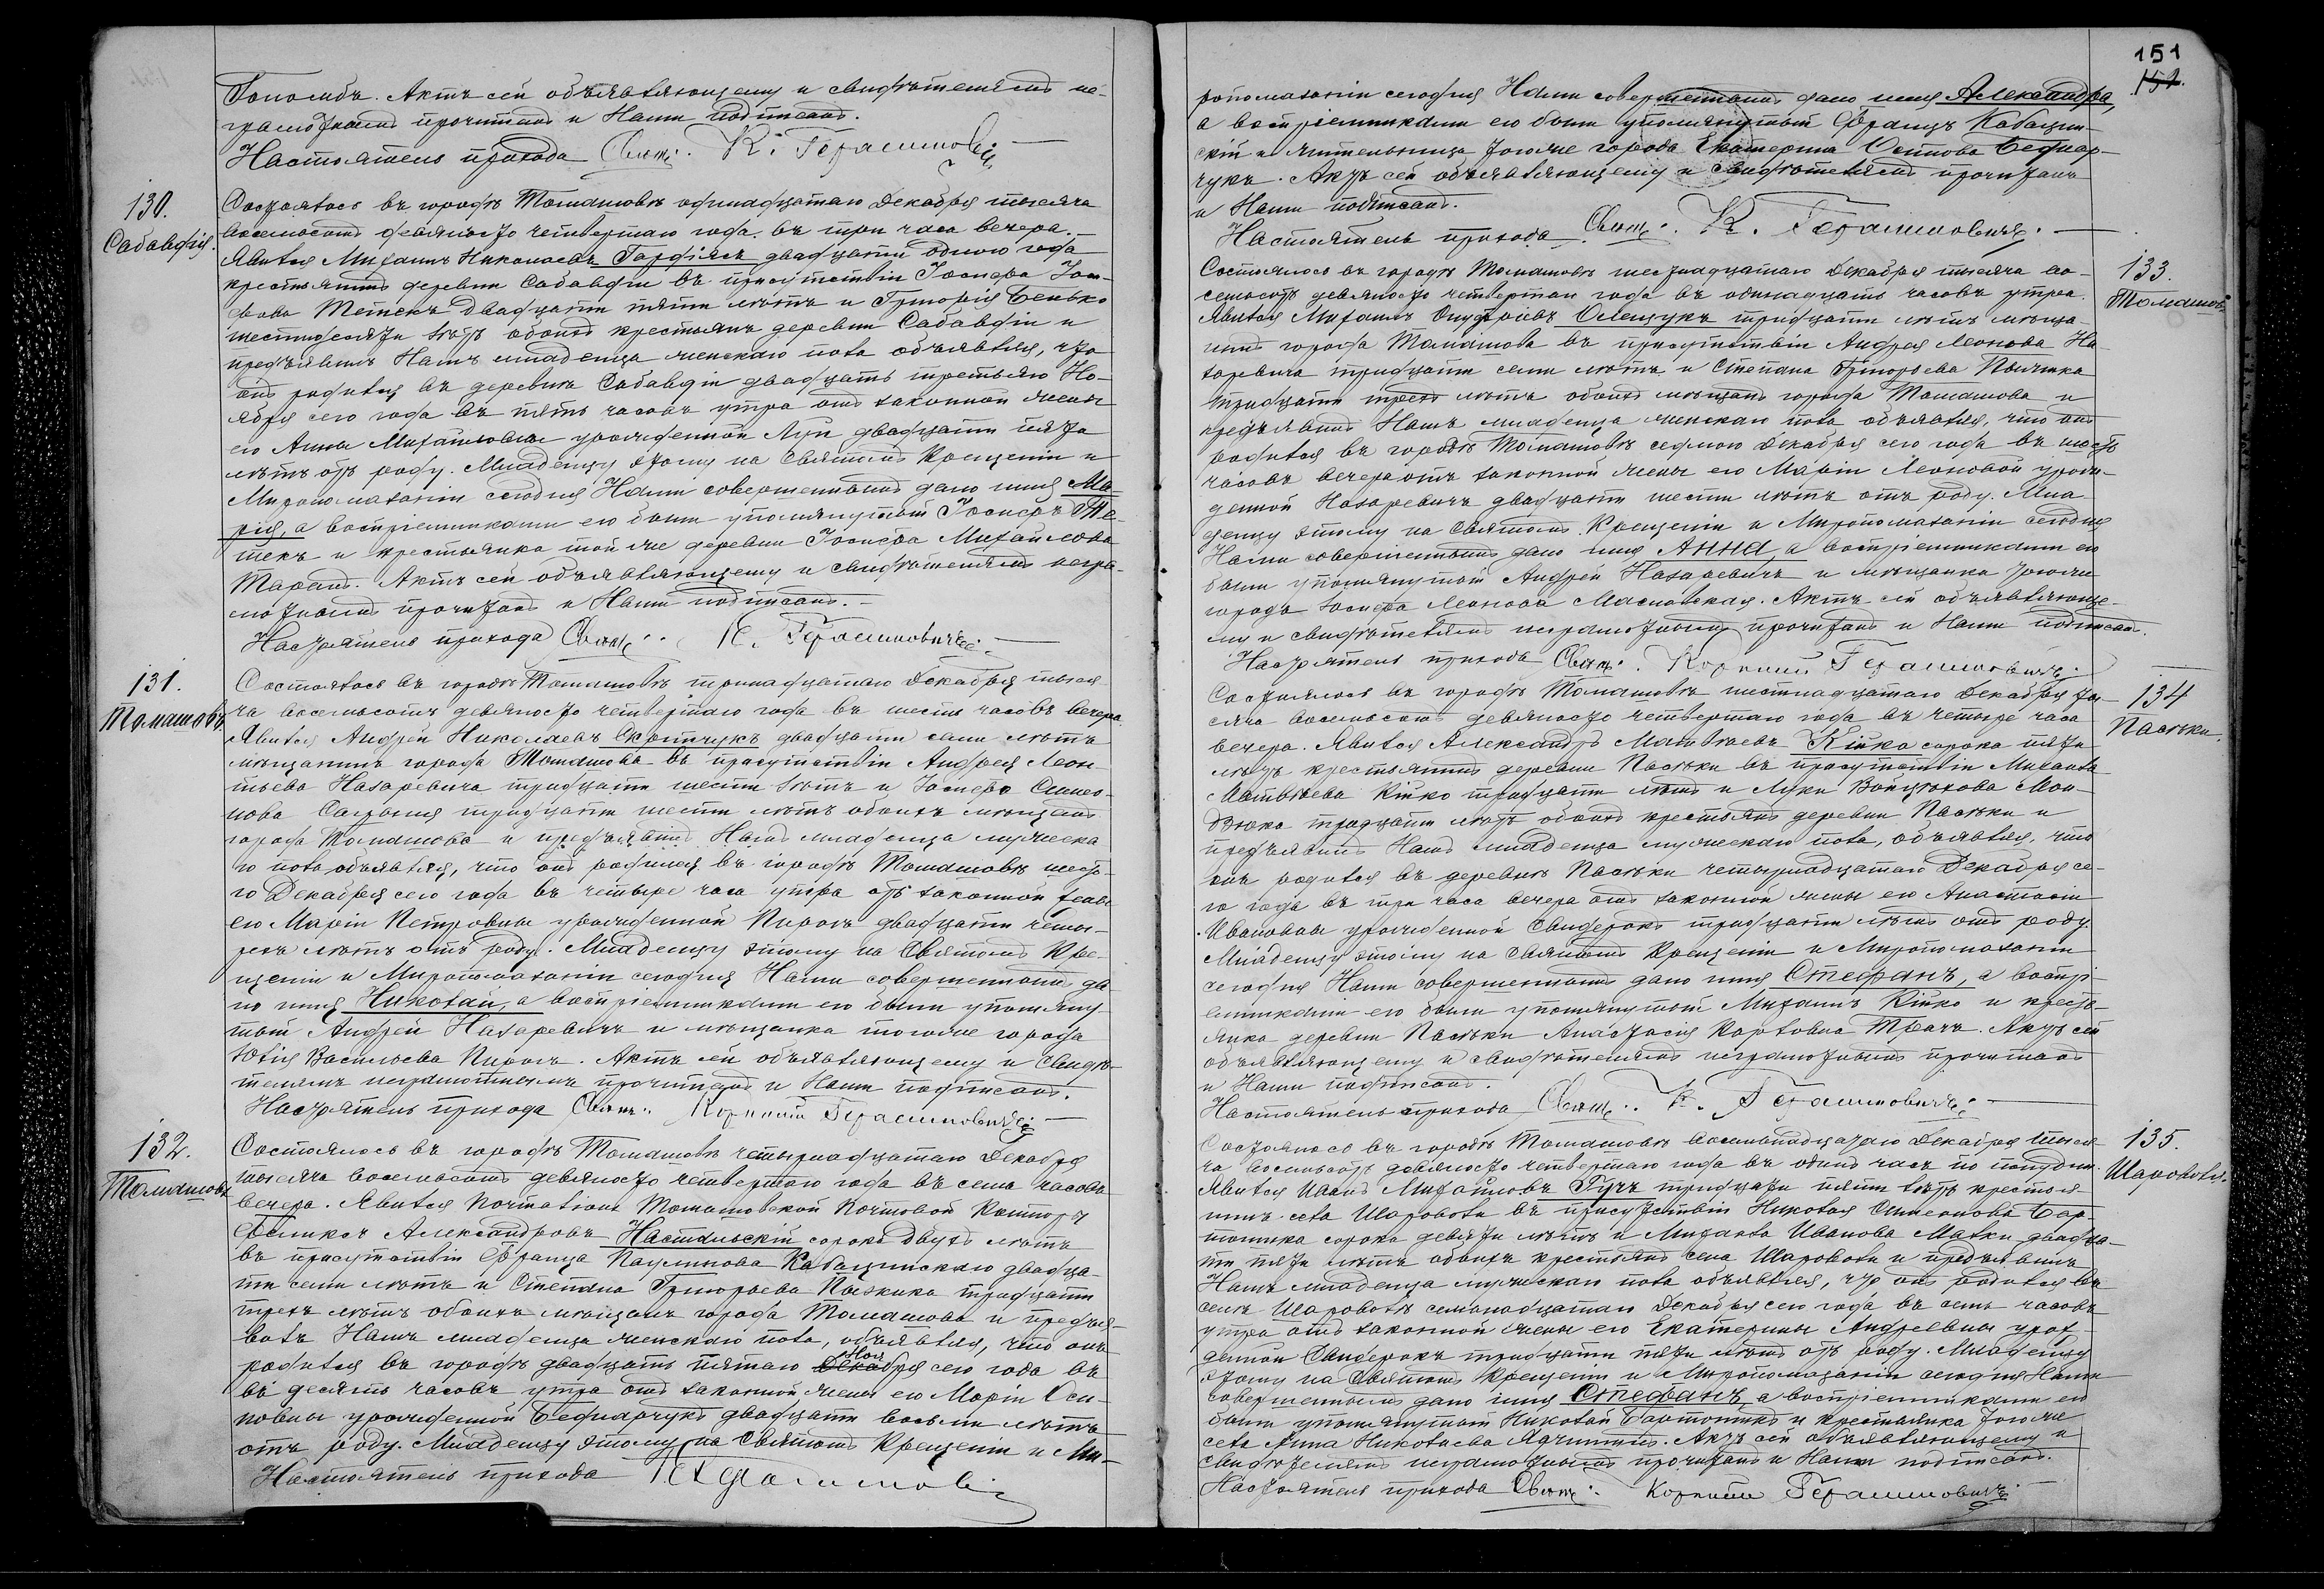 Гополюбъ. Актъ сей объявляющему и свидѣтелямъ не-
грамотнымъ прочитанъ и Нами подписанъ.
Настоятель прихода Свящ. К. Герасимовичъ
130.
Сабавдія.
Состоялось въ городѣ Томашовѣ одинадцатаго Декабря тысяча
восемьсотъ девяносто четвертаго года въ три часа вечера.
Явился Михаилъ Николаевъ двадцати одного года
крестьянинъ деревни Сабавдіи въ присутствіи Іосифа Іоси-
фова двадцати пяти лѣтъ и Григорія Бенько
шестидесяти лѣтъ обоихъ крестьянъ деревни Сабавдіи и
предъявилъ Намъ младенца женскаго пола объявляя, что
онъ родился въ деревнѣ Сабавдіи двадцать третьяго Но-
ября сего года въ пять часовъ утра отъ законной жены
его Анны Михайловны урожденной Луй двадцати пяти
лѣтъ отъ роду. Младенцу этому на Святомъ Крещеніи и
Миропомазаніи сегодня Нами совершенномъ дано имя Ма-
рія, а воспріемниками его были упомянутый Іосифъ Те-
и крестьянка той же деревни Іосифа Михайлова
Таранъ. Актъ сей объявляющему и свидѣтелямъ негра-
мотнымъ прочитанъ и Нами подписанъ.
Настоятель прихода Свящ. К. Герасимовичъ.
131.
Томашовъ.
Состоялось въ городѣ Томашовѣ тринадцатаго Декабря тыся-
ча восемьсотъ девяносто четвертаго года въ шесть часовъ вечера
Явился Андрей Николаевъ двадцати семи лѣтъ
мѣщанинъ города Томашова въ присутствіи Андрея Леон-
тьева Назаревича тридцати шести лѣтъ и Іосифа Симео-
нова тридцати шести лѣтъ обоихъ мѣщанъ
города Томашова и предъявилъ Намъ младенца мужеска-
го пола объявляя, что онъ родился въ городѣ Томашовѣ шесто-
го Декабря сего года въ четыре часа утра отъ законной жены
его Маріи Петровны урожденной Пирогъ двадцати четы-
рехъ лѣтъ отъ роду. Младенцу этому на Святомъ Кре-
щеніи и Миропомазаніи сегодня Нами совершенномъ да-
но имя Николай, а воспріемниками его были упомяну-
тый Андрей Назаревичъ и мѣщанка тогоже города
Юлія Васильева Пирогъ. Актъ сей объявляющему и Свидѣ-
телямъ неграмотнымъ прочитанъ и Нами подписанъ.
Настоятель прихода Свящ. Корнилій Герасимовичъ.
132.
Томашовъ
Состоялось въ городѣ Томашовѣ четырнадцатаго Декабря
тысяча восемьсотъ девяносто четвертаго года въ семь часовъ
вечера. Явился Почталіонъ Томашовской Почтовой Конторы
Феликсъ Александровъ Настальскій сорока двухъ лѣтъ
въ присутствіи Франца Паулинова Кабацинскаго двадца-
ти семи лѣтъ и Степана Григорьева Пыжика тридцати
трехъ лѣтъ обоихъ мѣщанъ города Томашова и предъя-
вилъ Намъ младенца женскаго пола, объявляя, что онъ
родился въ городѣ двадцать пятаго Ноября сего года въ
въ десять часовъ утра отъ законной жены его Маріи Оси-
повны урожденной Беднарчукъ двадцати восьми лѣтъ
отъ роду. Младенцу этому на Святомъ Крещеніи и Ми-
Настоятель прихода К Герасимовичъ
151
152.
ропомазаніи сегодня Нами совершенномъ дано имя Александра,
а воспріемниками его были упомянутый Францъ Кабацин-
скій и жительница тогоже города Екатерина Осипова Беднар-
чукъ. Актъ сей объявляющему и свидѣтелямъ прочитанъ
и Нами подписанъ.
Настоятель прихода Свящ. К. Герасимовичъ.
133.
Томашовъ
Состоялось въ городѣ Томашовѣ шестнадцатаго Декабря тысяча во-
семьсотъ девяносто четвертаго года въ одинадцать часовъ утра.
Явился Михаилъ Онуфріевъ Олещукъ тридцати лѣтъ мѣща-
нинъ города Томашова въ присутствіи Андрея Леонова На-
заревича тридцати семи лѣтъ и Степана Григорьева Пыжика
тридцати трехъ лѣтъ обоихъ мѣщанъ города Томашова и
предъявилъ Намъ младенца женскаго пола объявляя, что онъ
родился въ городѣ Томашовѣ седмого Декабря сего года въ шесть
часовъ вечера отъ законной жены его Маріи Леоновой урож-
денной Назаревичъ двадцати шести лѣтъ отъ роду. Мла-
денцу этому на Святомъ Крещеніи и Миропомазаніи сегодня
Нами совершенномъ дано имя Анна, а воспріемниками его
были упомянутый Андрей Назаревичъ и мѣщанка тогоже
города Іосифа Леонова Масловская. Актъ сей объявляюще-
му и свидѣтелямъ неграмотнымъ прочитанъ и Нами подписанъ.
Настоятель прихода Свящ. Корнилій Герасимовичъ.
134
Пасѣки.
Состоялось въ городѣ Томашовѣ шестнадцатаго Декабря ты-
сяча восемьсотъ девяносто четвертаго года въ четыре часа
вечера. Явился Александръ Матвѣевъ Кійко сорока пяти
лѣтъ крестьянинъ деревни Пасѣки въ присутствіи Михаила
Матвѣева Кійко тридцати лѣтъ и Луки Войцѣхова Мон-
дзюка тридцати лѣтъ обоихъ крестьянъ деревни Пасѣки и
предъявилъ Намъ младенца мужескаго пола, объявляя, что
онъ родился въ деревнѣ Пасѣки четырнадцатаго Декабря се-
го года въ три часа вечера отъ законной жены его Анастасіи
Ивановны урожденной Свидерокъ тридцати лѣтъ отъ роду.
Младенцу этому на Святомъ Крещеніи и Миропомазаніи
сегодня Нами совершенномъ дано имя Стефанъ, а воспрі-
емниками его были упомянутый Михаилъ Кійко и кресть-
янка деревни Пасѣки Анастасія Карловна Трачъ. Актъ сей
объявляющему и свидѣтелямъ неграмотнымъ прочитанъ
и Нами подписанъ.
Настоятель прихода Свящ. К. Герасимовичъ.
135.
Шаровола.
Состоялось въ городѣ Томашовѣ восемьнадцатаго Декабря тыся-
ча восемьсотъ девяносто четвертаго года въ одинъ часъ по полудни.
Явился Иванъ Михайловъ Гучъ тридцати пяти лѣтъ крестья-
нинъ села Шароволи въ присутствіи Николая Симеонова Бар-
тошика сорока девяти лѣтъ и Михаила Иванова Малки двадца-
ти пяти лѣтъ обоихъ крестьянъ села Шароволи и предъявилъ
Намъ младенца мужескаго пола объявляя, что онъ родился въ
селѣ Шароволѣ семнадцатаго Декабря сего года въ семь часовъ
утра отъ законной жены его Екатерины Андреевны урож-
денной Свидерокъ тридцати пяти лѣтъ отъ роду. Младенцу
этому на Святомъ Крещеніи и Миропомазаніи сегодня Нами
совершенномъ дано имя Стефанъ, а воспріемниками его
были упомянутый Николай и крестьянка тогоже
села Анна Николаева. Актъ сей объявляющему и
свидѣтелямъ неграмотнымъ прочитанъ и Нами подписанъ.
Настоятель прихода Свящ. Корнилій Герасимовичъ.